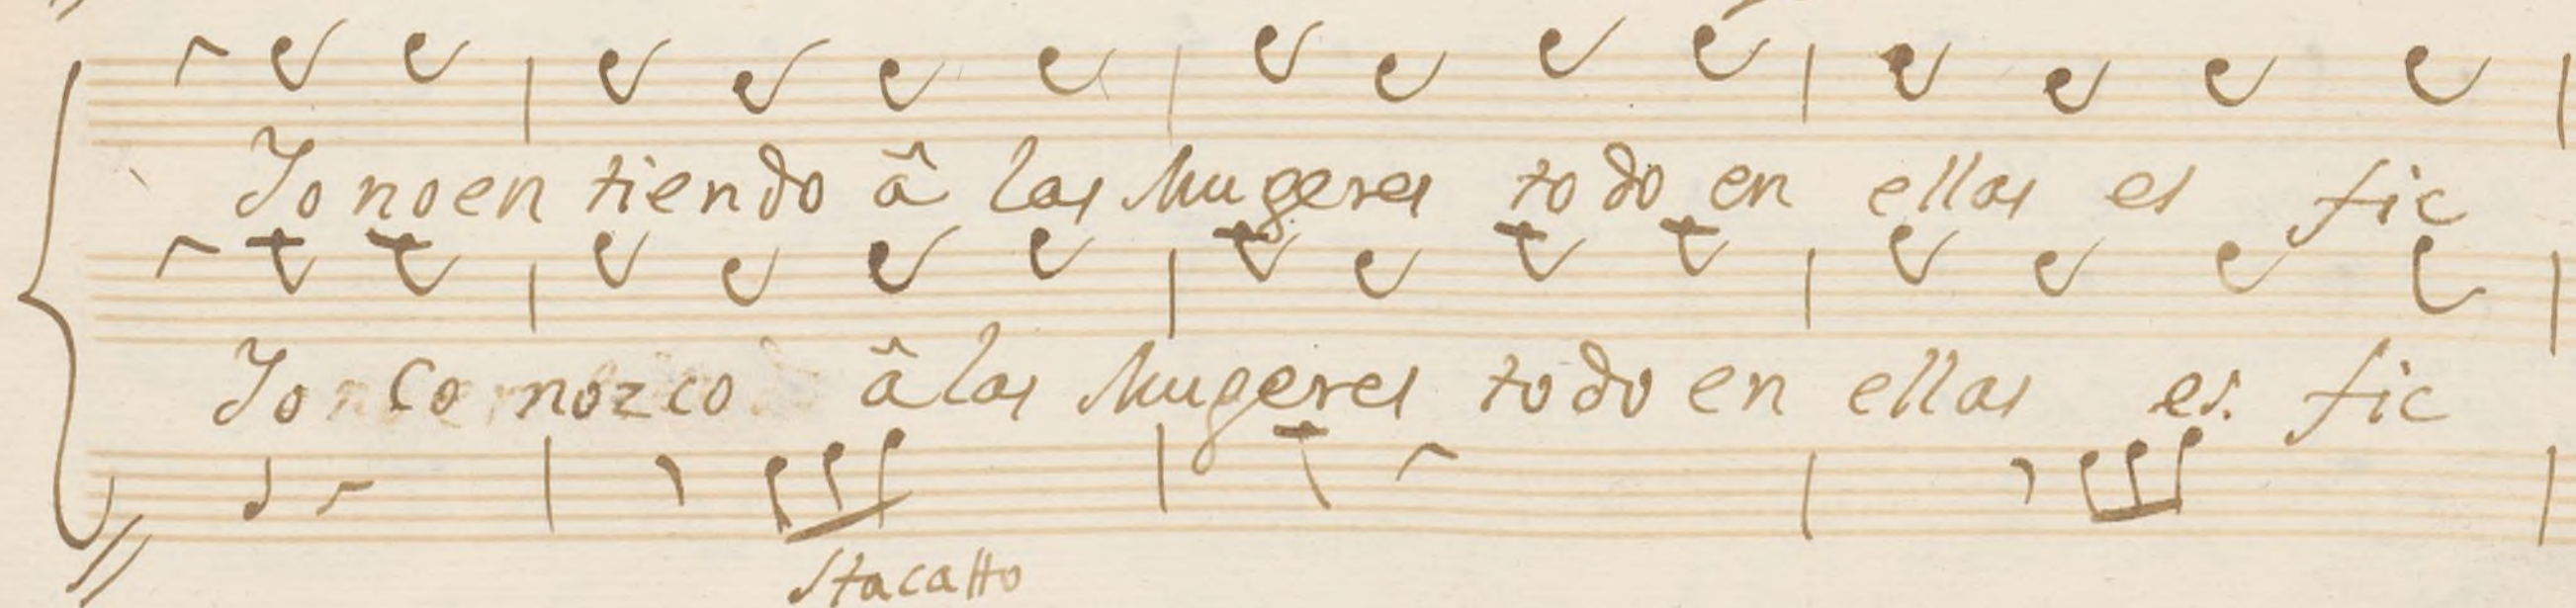 Yo no en tiendo â las Mugeres todo en ellas es fic
Yo Co nozco â las Mugeres todo en ellas es fic
Stacatto